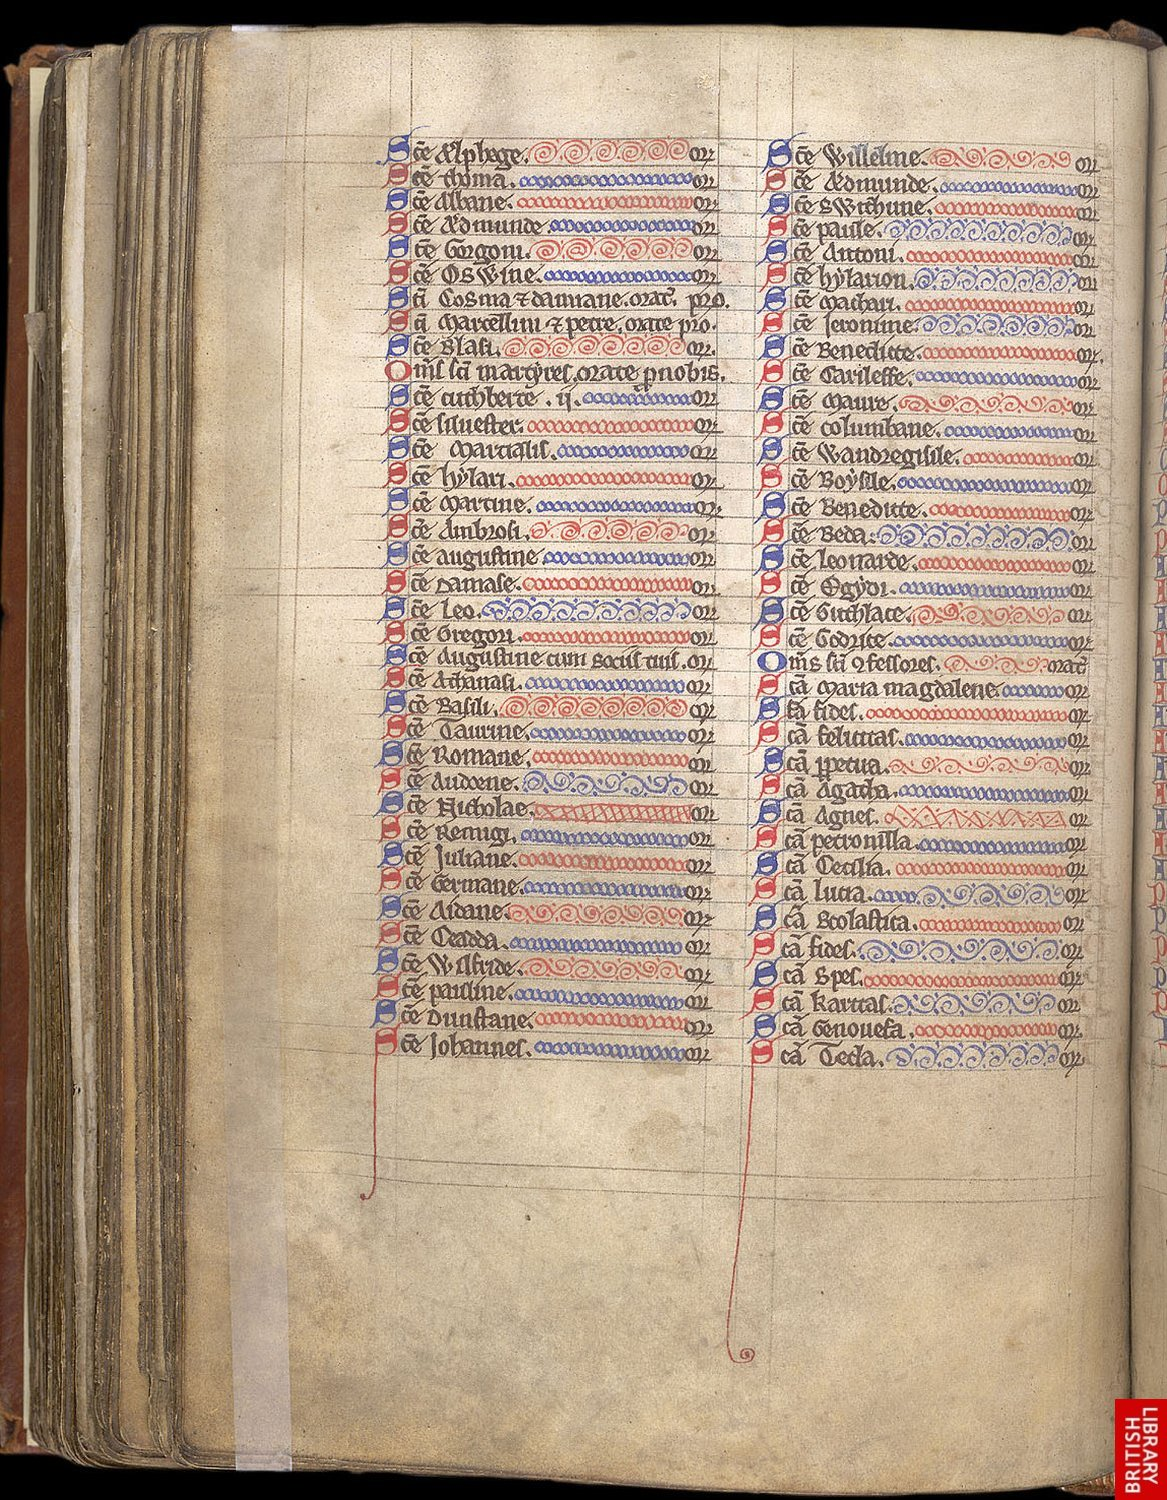 Sc̄e Ælphege. or̄
Sc̄e thoma. or̄
Sc̄e Albane. or̄
Sc̄e Ædmunde. or̄
Sc̄e Gorgoni. or̄
Sc̄e Oswine. or̄
Sc̄i Cosma ⁊ damiane. orat̄. pro.
Sc̄i Marcellini ⁊ petre. orate pro.
Sc̄e Blasi. or̄
Om̄s sc̄i martyres. orate ꝓ nobis.
Sc̄e cuthberte. ij. or̄
Sc̄e siluester. or̄
Sc̄e Martialis. or̄
Sc̄e hylari. or̄
Sc̄e Martine. or̄
Sc̄e Ambrosi. or̄
Sc̄e augustine or̄
Sc̄e Damase. or̄
Sc̄e Leo. or̄
Sc̄e Gregori. or̄
Sc̄e Augustine cum sociis tuis. or̄
Sc̄e Athanasi. or̄
Sc̄e Basili. or̄
Sc̄e Taurine. or̄
Sc̄e Romane. or̄
Sc̄e Audoene. or̄
Sc̄e Nicholae. or̄
Sc̄e Remigi. or̄
Sc̄e Juliane. or̄
Sc̄e Germane. or̄
Sc̄e Aidane. or̄
Sc̄e Ceadda. or̄
Sc̄e Wilfride. or̄
Sc̄e pauline. or̄
Sc̄e Dunstane. or̄
Sc̄e Johannes. or̄
Sc̄e Willelme. or̄
Sc̄e Ædmunde. or̄
Sc̄e Swithune. or̄
Sc̄e paule. or̄
Sc̄e Antoni. or̄
Sc̄e hylarion. or̄
Sc̄e Machari. or̄
Sc̄e Jeronime. or̄
Sc̄e Benedicte. or̄
Sc̄e Carileffe. or̄
Sc̄e Maure. or̄
Sc̄e columbane. or̄
Sc̄e Wandregisile. or̄
Sc̄e Boysile. or̄
Sc̄e Benedicte. or̄
Sc̄e Beda. or̄
Sc̄e Leonarde. or̄
Sc̄e Egydi. or̄
Sc̄e Guthlace. or̄
Sc̄e Godrice. or̄
Om̄s sc̄i ꝯfessores. orat̄
Sc̄a Maria magdalene. or̄
Sc̄a fides. or̄
Sc̄a felicitas. or̄
Sc̄a ꝑpetua. or̄
Sc̄a Agatha. or̄
Sc̄a Agnes. or̄
Sc̄a petronilla. or̄
Sc̄a Cecilia. or̄
Sc̄a Lucia. or̄
Sc̄a Scolastica. or̄
Sc̄a fides. or̄
Sc̄a Spes. or̄
Sc̄a Karitas. or̄
Sc̄a Genouefa. or̄
Sc̄a Tecla. or̄
BRITISH
LIBRARY